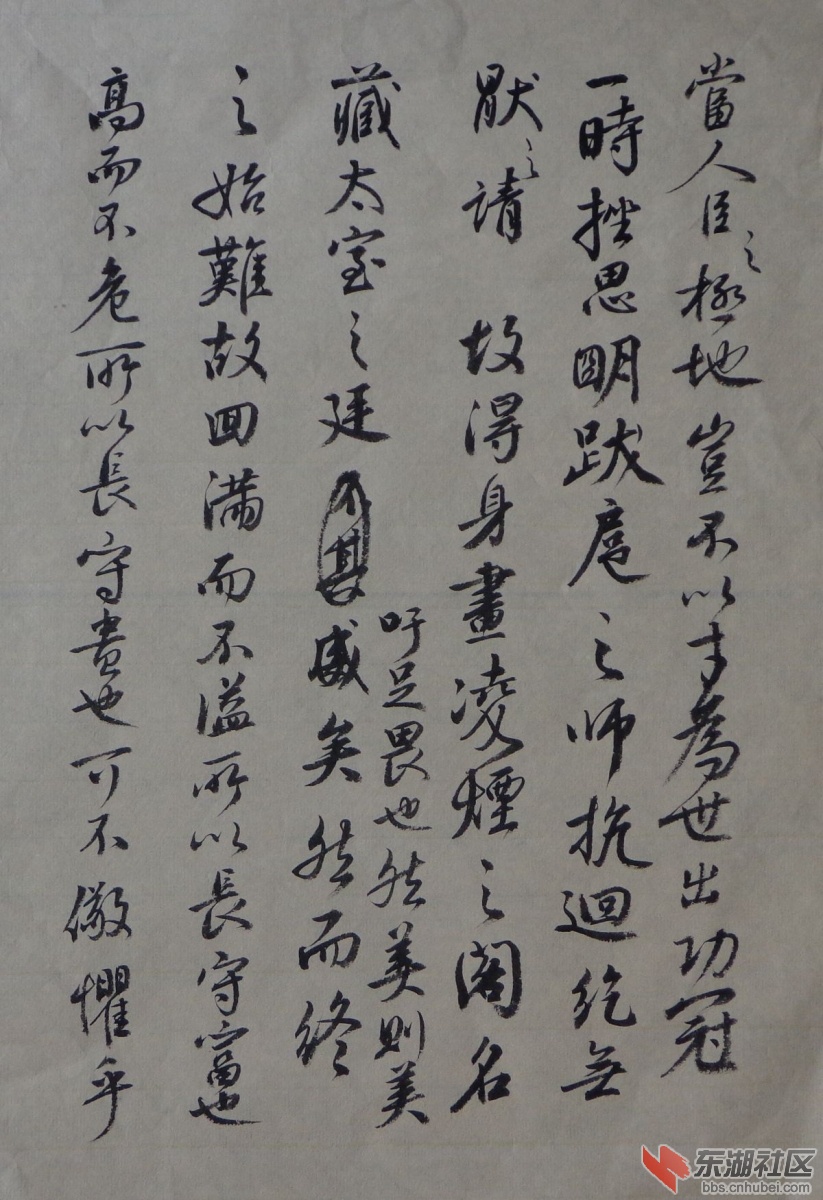 當人臣之極地豈不以才為世出功冠
一時挫思明跋扈之師抗迴紇無
厭之請 故得身畫凌煙之閣名
藏太室之廷不其盛矣然而終
吁足畏也然美則美
之始難故曰滿而不溢所以長守富也
高而不危所以長守貴也可不儆懼乎
东湖社区
bbs.cnhubei.com